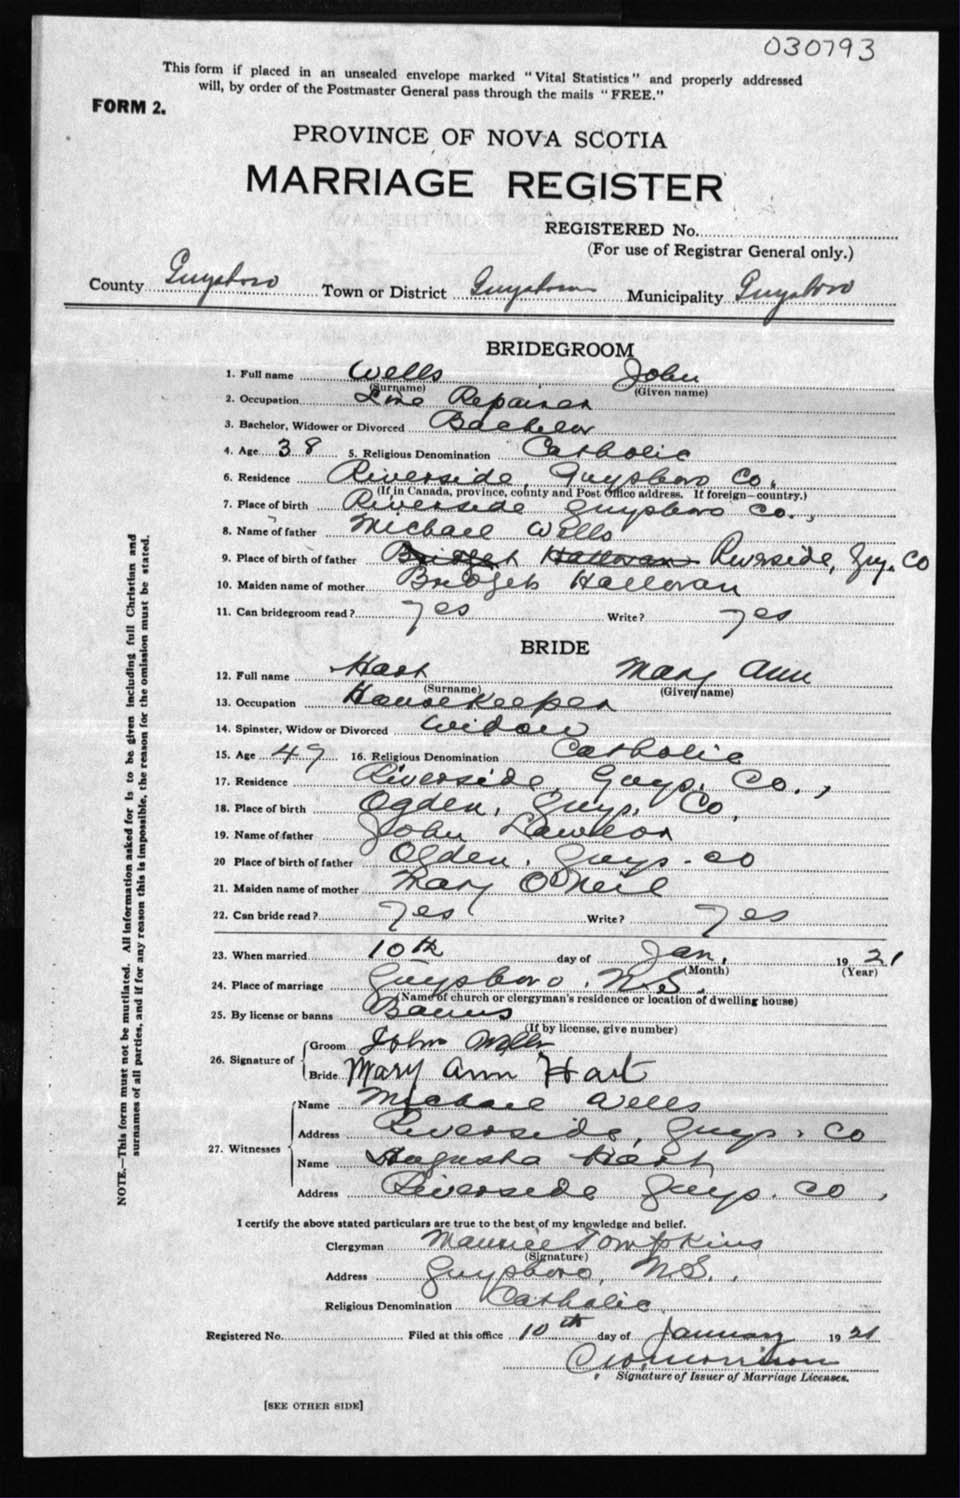 030793
This form if placed in an unsealed envelope marked "Vital Statistics" and properly addressed
will, by order of the Postmaster General pass through the mails "FREE."
FORM 2.
PROVINCE OF NOVA SCOTIA
MARRIAGE REGISTER
REGISTERED No.
(For use of Registrar General only.)
County Guysboro Town or District Guysboro Municipality Guysboro
BRIDEGROOM
1. Full name Wells John
(Surname) (Given name)
2. Occupation Line Repairer
3. Bachelor, Widower or Divorced Bachelor
4. Age 38 5. Religious Denomination Catholic
6. Residence Riverside, Guysboro Co.
(If in Canada, province, county and Post Office address. If foreign—country.)
7. Place of birth Riverside Guysboro Co.,
8. Name of father Michael Wells
9. Place of birth of father Bridget Halloran Riverside, Guy. Co
10. Maiden name of mother Bridget Halloran
11. Can bridegroom read? yes Write? yes
BRIDE
12. Full name Hart Mary Ann
(Surname) (Given name)
13. Occupation Housekeeper
14. Spinster, Widow or Divorced Widow
15. Age 49 16. Religious Denomination Catholic
17. Residence Riverside, Guys. Co.,
18. Place of birth Ogden, Guys. Co.
19. Name of father John
20 Place of birth of father Ogden, Guys. Co
21. Maiden name of mother Mary O'Neil
22. Can bride read? yes Write? yes
23. When married 10th day of Jan, 1921
(Month) (Year)
24. Place of marriage Guysboro, N.S.
(Name of church or clergyman's residence or location of dwelling house)
25. By license or banns Banns
(If by license, give number)
26. Signature of Groom John Wells
Bride Mary Ann Hart
27. Witnesses Name Michael Wells
Address Riverside, Guys. Co
Name Augusta Hart
Address Riverside Guys. Co,
I certify the above stated particulars are true to the best of my knowledge and belief.
Clergyman Maurice Tompkins
(Signature)
Address Guysboro, N.S.,
Religious Denomination Catholic
Registered No. Filed at this office 10th day of January 1921
C W Morrison
Signature of Issuer of Marriage Licenses.
[SEE OTHER SIDE]
NOTE.—This form must not be mutilated. All information asked for is to be given including full Christian and
surnames of all parties, and if for any reason this is impossible, the reason for the omission must be stated.